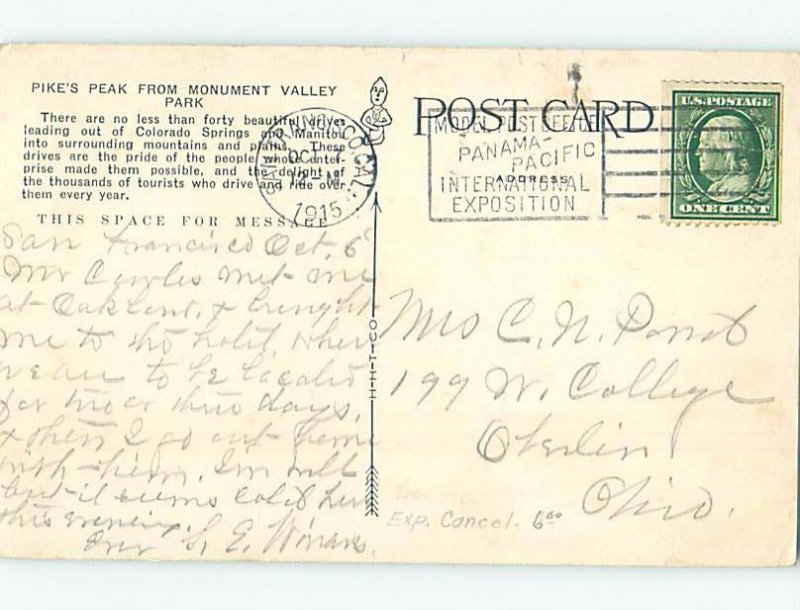 PIKE'S PEAK FROM MONUMENT VALLEY
PARK
There are no less than forty beautiful drives
leading out of Colorado Springs and Manitou
into surrounding mountains and plains. These
drives are the pride of the people whose enter-
prise made them possible, and the delight of
the thousands of tourists who drive and ride over
them every year.
THIS SPACE FOR MESSAGE
San Francisco Oct. 6
Mr met me
at Oakland, & brought
me to the hotel, where
we are to be located
for two or three days,
& then I go out home
with them. I'm well
but it seems cold here
this evening.
S. E.
H-H-T-CO
CAL.
OCT
1915
POST CARD
ADDRESS
MODEL POST OFFICE
PANAMA-
PACIFIC
INTERNATIONAL
EXPOSITION
U.S. POSTAGE
ONE CENT
Mrs C. N. Pond
199 W. College
Oberlin
Ohio.
Exp. Cancel. 6.00